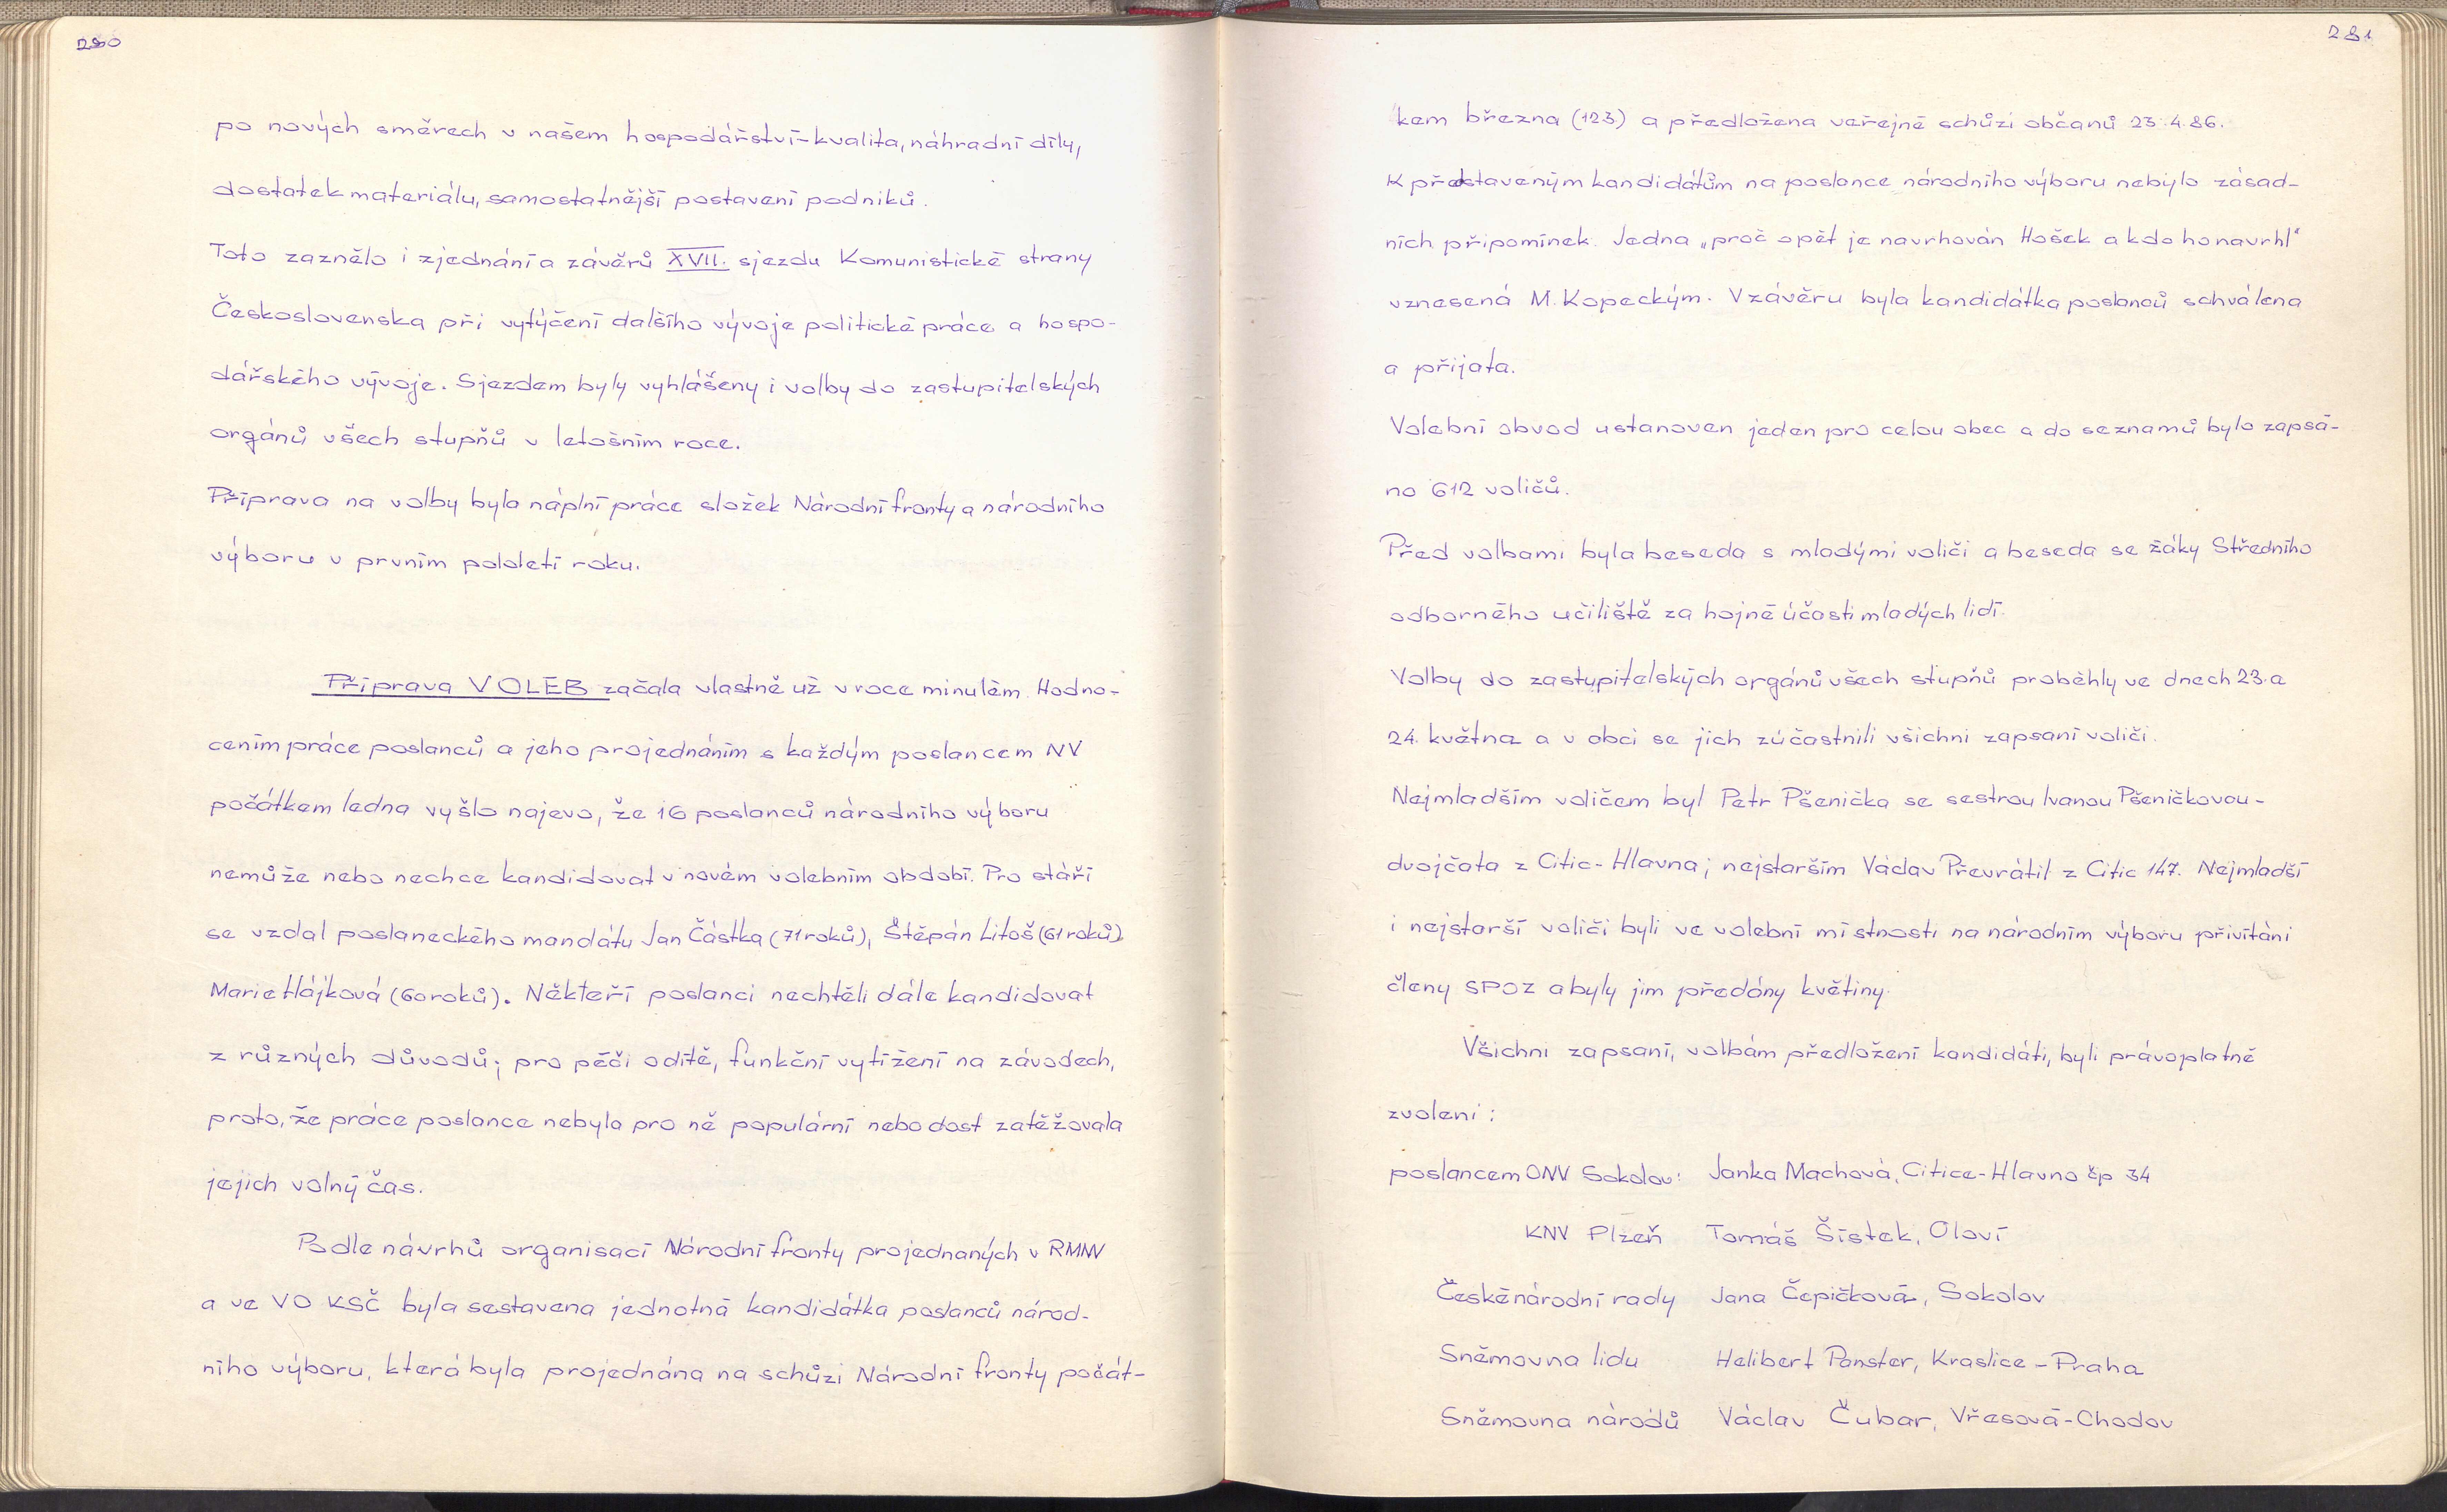 280
po nových směrech v našem hospodářství-kvalita, náhradní díly,
dostatek materiálu, samostatnější postavení podniků.
Toto zaznělo i z jednání a závěrů XVII. sjezdu Komunistické strany
Československa při vytýčení dalšího vývoje politické práce a hospo-
dářského vývoje. Sjezdem byly vyhlášeny i volby do zastupitelských
orgánů všech stupňů v letošním roce.
Příprava na volby byla náplní práce složek Národní fronty a národního
výboru v prvním pololetí roku.
Příprava VOLEB začala vlastně už v roce minulém. Hodno-
cením práce poslanců a jeho projednáním s každým poslancem NV
počátkem ledna vyšlo najevo, že 16 poslanců národního výboru
nemůže nebo nechce kandidovat v novém volebním období. Pro stáří
se vzdal poslaneckého mandátu Jan Částka (71 roků), Štěpán Litoš (61 roků)
Marie Hájková (60 roků). Někteří poslanci nechtěli dále kandidovat
z různých důvodů; pro péči o dítě, funkční vytížení na závodech,
proto, že práce poslance nebyla pro ně populární nebo dost zatěžovala
jejich volný čas.
Podle návrhů organisací Národní fronty projednaných v RMNV
a ve VO KSČ byla sestavena jednotná kandidátka poslanců národ-
ního výboru, která byla projednána na schůzi Národní fronty počát-
281
kem března (12.3.) a předložena veřejné schůzi občanů 23.4.86.
K představeným kandidátům na poslance národního výboru nebylo zásad-
ních připomínek. Jedna „proč opět je navrhován Hošek a kdo ho navrhl“
vznesená M. Kopeckým. V závěru byla kandidátka poslanců schválena
a přijata.
Volební obvod ustanoven jeden pro celou obec a do seznamů bylo zapsá-
no 612 voličů.
Před volbami byla beseda s mladými voliči a beseda se žáky Středního
odborného učiliště za hojné účasti mladých lidí.
Volby do zastupitelských orgánů všech stupňů proběhly ve dnech 23. a
24. května a v obci se jich zúčastnili všichni zapsaní voliči.
Nejmladším voličem byl Petr Pšenička se sestrou Ivanou Pšeničkovou-
dvojčata z Citic-Hlavna; nejstarším Václav Převrátil z Citic 147. Nejmladší
i nejstarší voliči byli ve volební místnosti na národním výboru přivítáni
členy SPOZ a byly jim předány květiny.
Všichni zapsaní, volbám předložení kandidáti, byli právoplatně
zvoleni:
poslancem ONV Sokolov: Janka Machová, Citice-Hlavno čp 34
KNV Plzeň Tomáš Šístek, Oloví
České národní rady Jana Čepičková, Sokolov
Sněmovna lidu Helibert Panster, Kraslice - Praha
Sněmovna národů Václav Čubar, Vřesová-Chodov